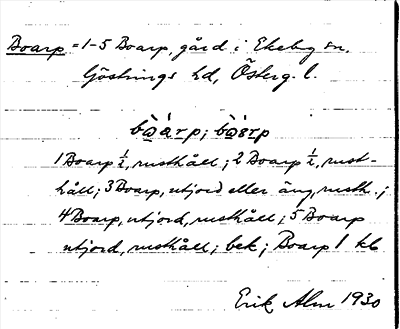 Boarp = 1-5 Boarp, gård i Ekeby sn,
Göstrings hd, Österg. l.
bòárp; bòarp
1 Boarp ½, rusthåll; 2 Boarp ½, rust-
håll; 3 Boarp, utjord eller äng, rusth.;
4 Boarp, utjord, rusthåll; 5 Boarp
utjord, rusthåll; bek; Boarp 1 kb
Erik Alm 1930